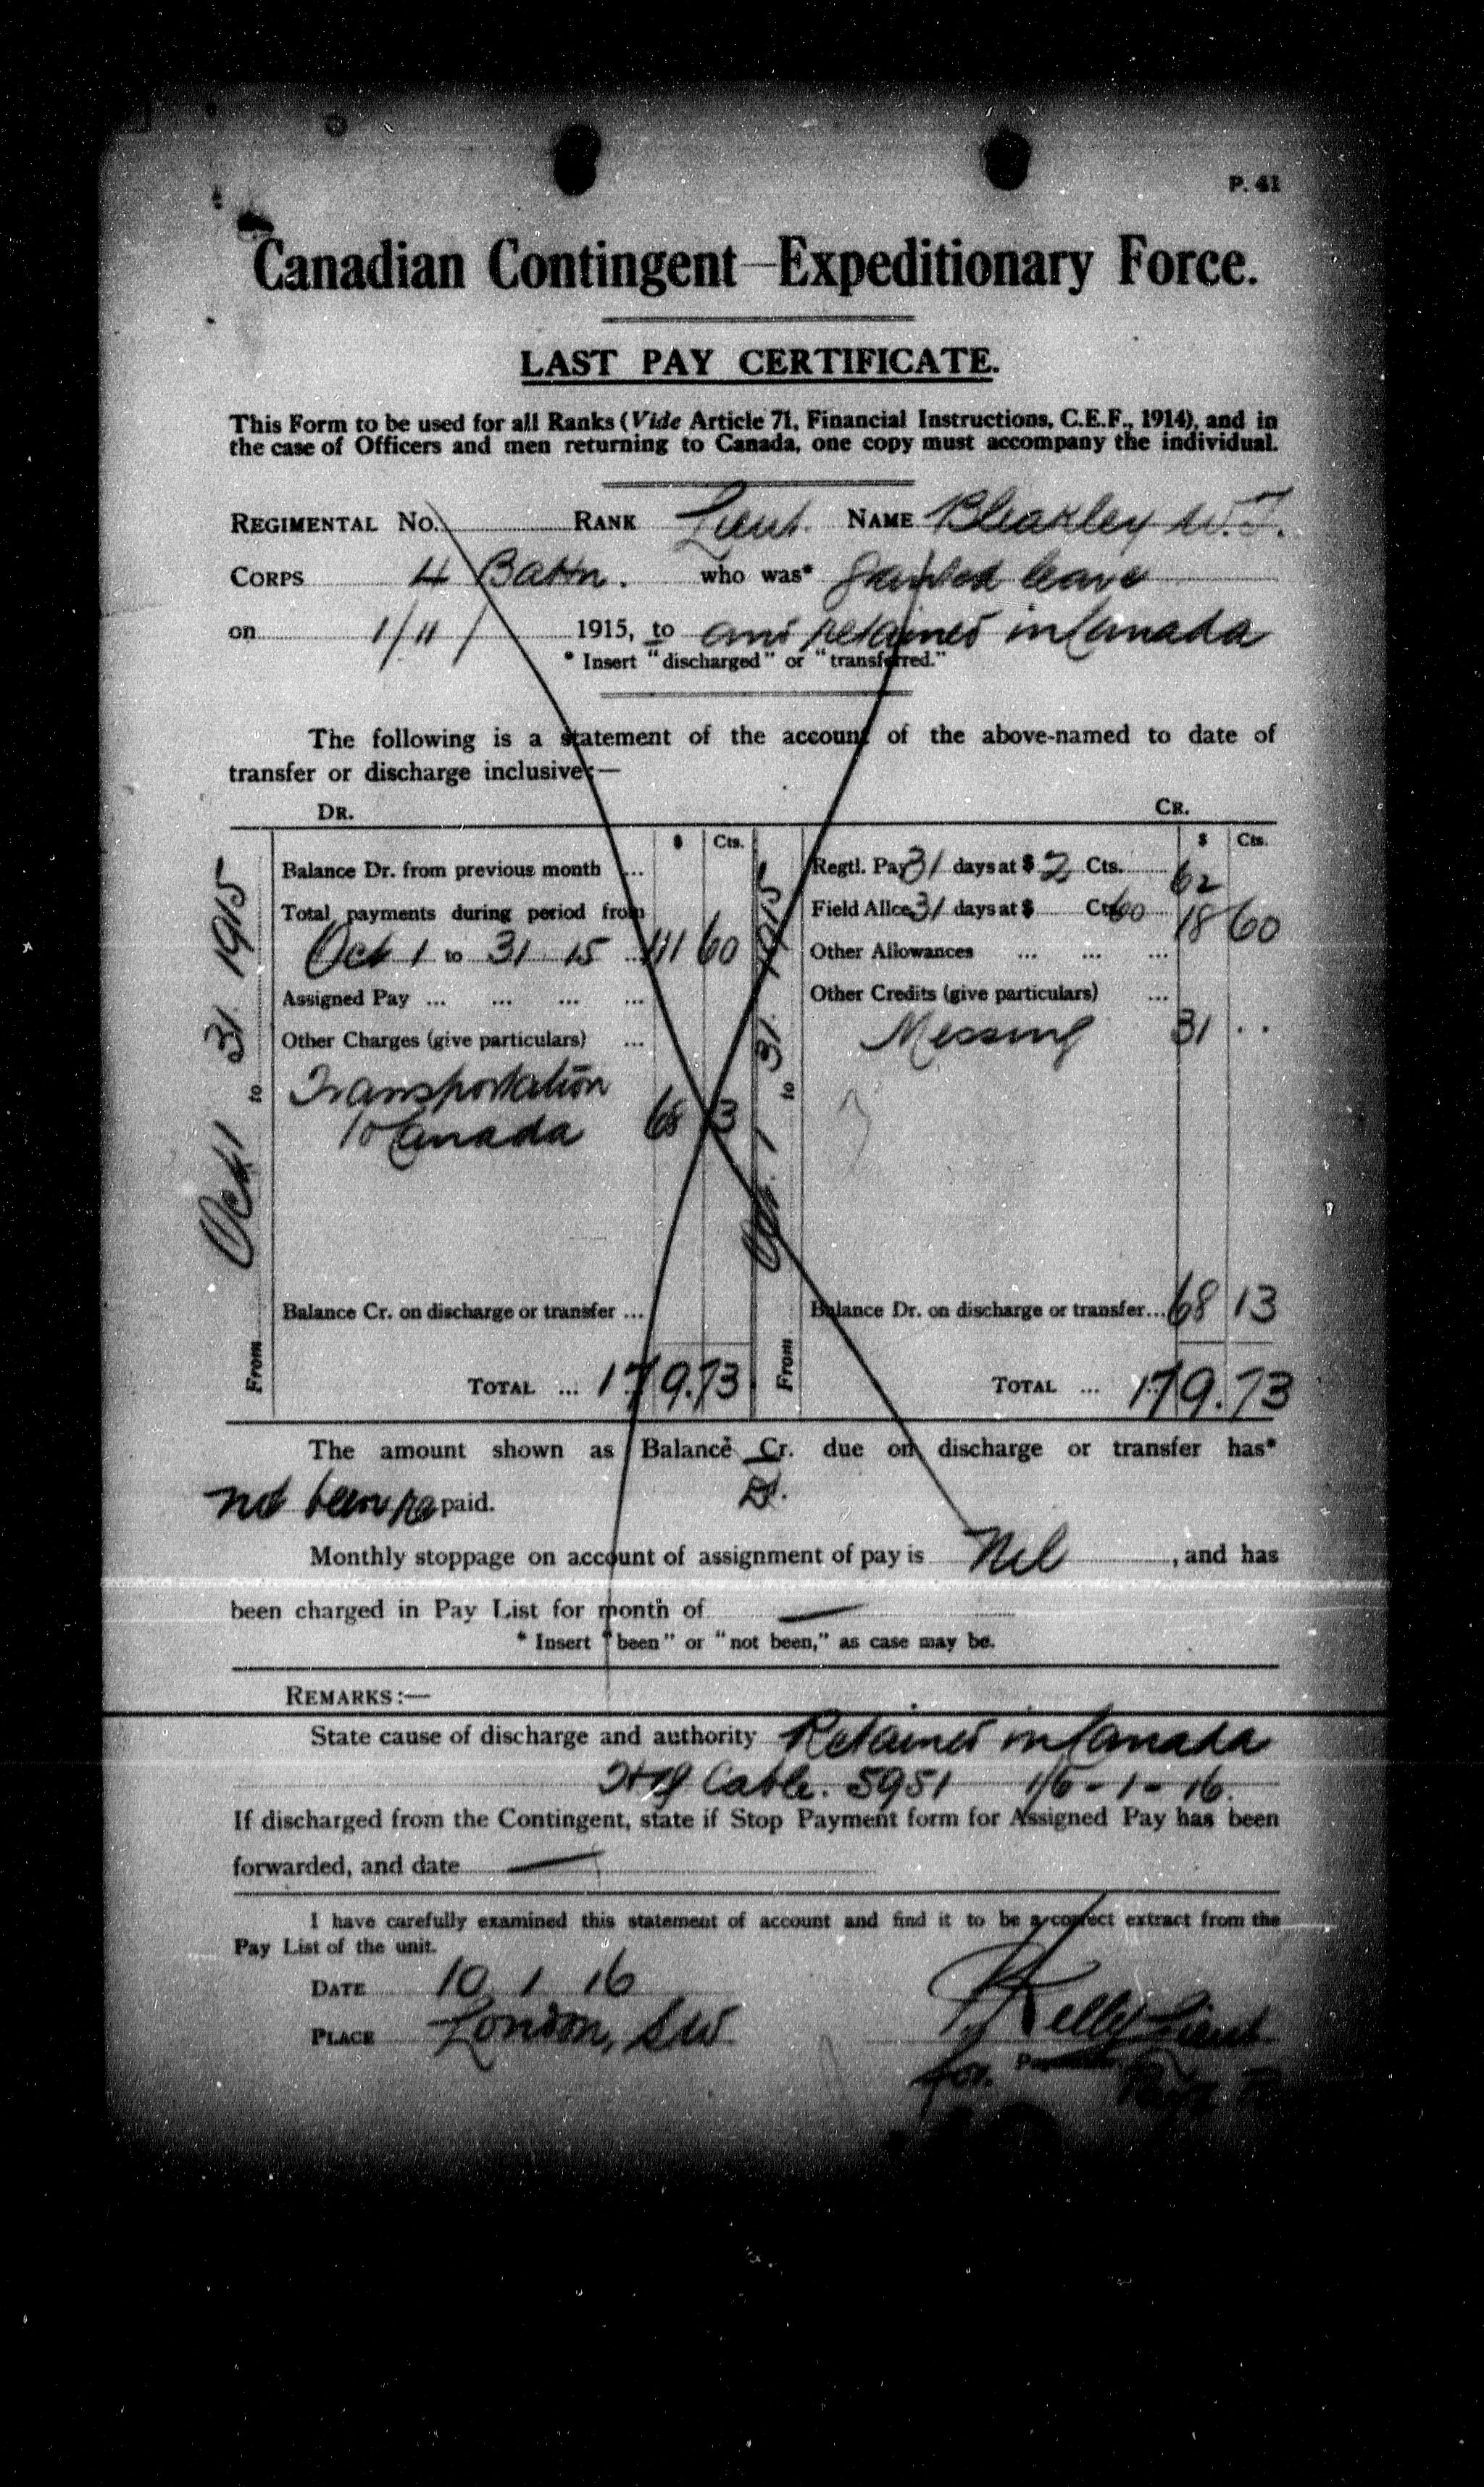 P. 41
Canadian Contingent Expeditionary Force.
LAST PAY CERTIFICATE.
This Form to be used for all Ranks (Vide Article 71, Financial Instructions, C.E.F., 1914), and in
the case of Officers and men returning to Canada, one copy must accompany the individual.
REGIMENTAL No. RANK Lieut. NAME Bleakley W.J.
CORPS 4 Battn. who was* granted leave
on 1/11/ 1915, to and retained in Canada
* Insert "discharged" or "transferred."
The following is a statement of the account of the above-named to date of
transfer or discharge inclusive:—
DR. CR.
From Oct 1 to 31 1915
$ Cts.
Balance Dr. from previous month ...
Total payments during period from
Oct 1 to 31 15 ... 111 60
Assigned Pay ... ... ... ...
Other Charges (give particulars) ...
Transportation
to Canada 68 13
Balance Cr. on discharge or transfer ...
TOTAL ... 179.73
From Oct. 1 to 31 1915
$ Cts.
Regtl. Pay 31 days at $ 2 Cts. 62
Field Allce 31 days at $ Cts 60 18 60
Other Allowances ... ... ...
Other Credits (give particulars) ...
Messing 31 . .
Balance Dr. on discharge or transfer... 68 13
TOTAL ... 179.73
The amount shown as Balance Cr. due on discharge or transfer has*
Dr.
not been re paid.
Monthly stoppage on account of assignment of pay is Nil , and has
been charged in Pay List for month of —
* Insert "been" or "not been," as case may be.
REMARKS:—
State cause of discharge and authority Retained in Canada
Cable. 5951 16 - 1 - 16.
If discharged from the Contingent, state if Stop Payment form for Assigned Pay has been
forwarded, and date —
I have carefully examined this statement of account and find it to be a correct extract from the
Pay List of the unit.
DATE 10 1 16
PLACE London, S.W.
Kelly Lieut
for.